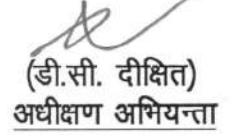 (डी.सी. दीक्षित)
अधीक्षण अभियन्ता